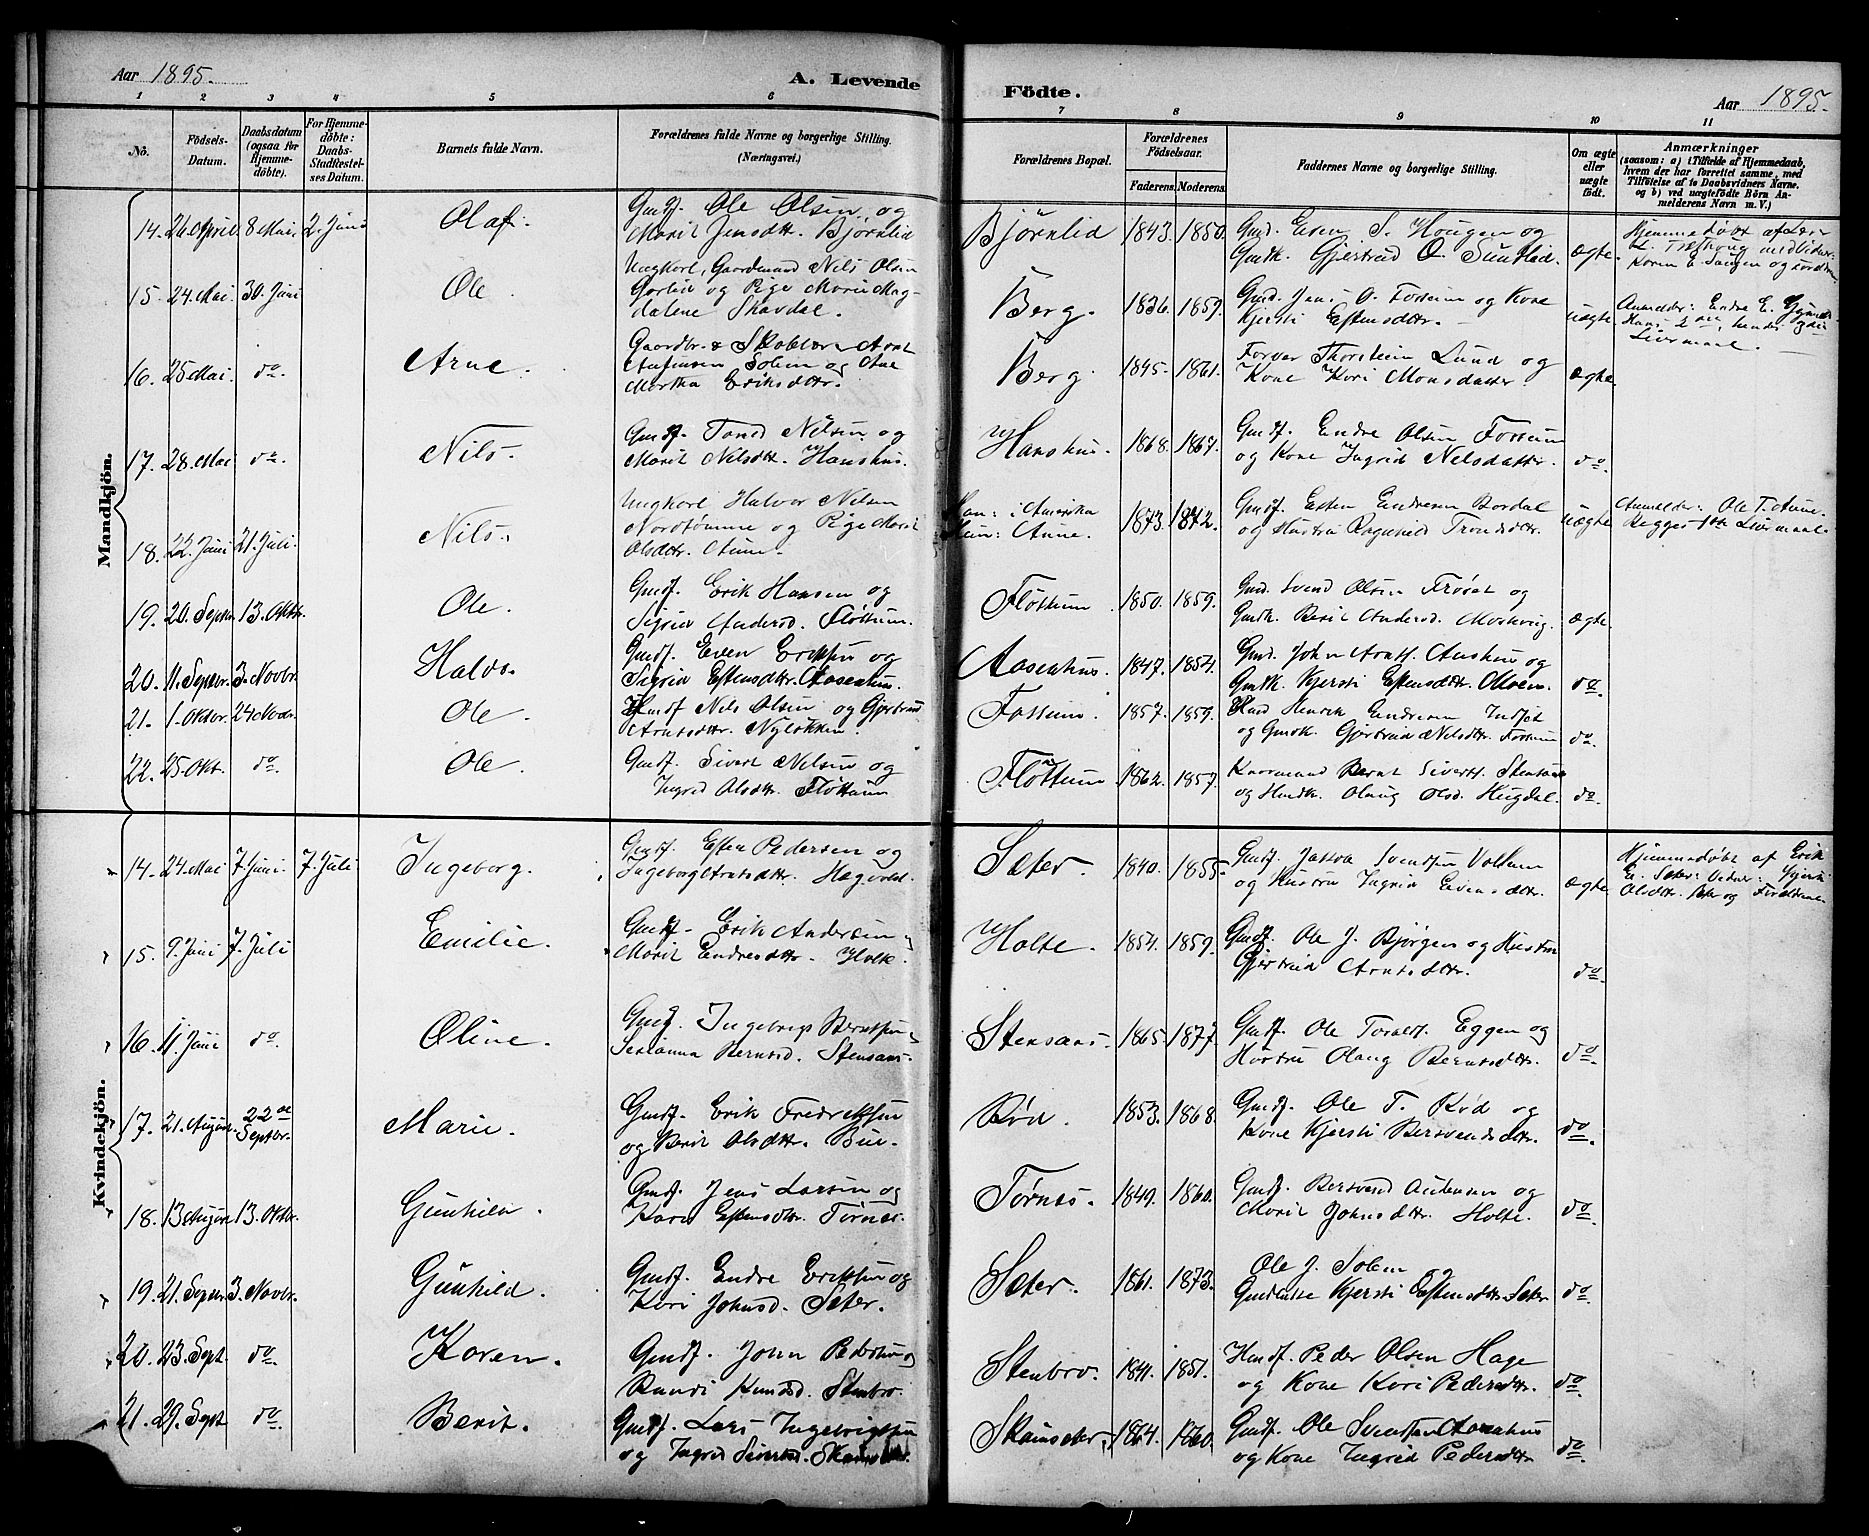 Aar 1895. A. Levende Födte. Aar 1895.
1 2 3 4 5 6 7 8 9 10 11
No. Födsels-Datum. Daabsdatum (ogsaa for Hjemme-döbte). For Hjemme-döbte: Daabs-Stadfæstel-ses Datum. Barnets fulde Navn. Forældrenes fulde Navne og borgerlige Stilling. (Næringsvei.)
Forældrenes Bopæl. Forældrenes Födselsaar. Faderens. Moderens. Faddernes Navne og borgerlige Stilling. Om ægte eller uægte födt. Anmærkninger
(saasom: a) i Tilfælde af Hjemmedaab, hvem der har forrettet samme, med Tilföielse af to Daabsvidners Navne. og b) ved uægtefödte Börn Anmelderens Navn m. V.)
Mandkjön.
14. 26 April 8 Mai. 2. Juni Olaf. Gmdf. Ole Olsen og
Marit Jensdtr. Bjørnlid Bjørnlid 1843. 1850. Gmd. Even S. Hougen og
Gmdk. Gjertrud O. ægte. Hjemmedøbt af
15. 24. Mai 30. Juni Ole. Ungkarl, Gaardmand Nils Olsen
og Pige Marie Mag-
dalene Skavdal. Berg. 1836. 1859. Gmd. Jens O. Fossum og Kone
Kjersti Estensdtr. uægte Anmelder: Endre E.
Leiermaal.
16. 25 Mai. do. Arne. Gaardbr. & Skolelærer Arnt
Solem og Ane
Martha Eriksdtr. Berg 1845. 1861. Thorstein Lund og
Kone Kari Monsdatter. ægte.
17. 28. Mai do. Nils. Gmdf. Nilsen og
Marit Nilsdtr. Hanshus. Hanshus. 1868. 1867. Gmdf. Endre Olsen Fossum
og Kone Ingrid Nilsdatter. do.
18. 22. Juni 21. Juli. Nils. Ungkarl Halvor Nilsen
Nordtømme og Pige Marit
Olsdtr. Aune. Han: i Amerika
Hun: Aune. 1873. 1872. Gmdf. Esten Endresen Bordal
og Hustru Ragnhild Trondsdtr. uægte Anmelder: Ole T. Aune.
Begges 1ste Leiermaal.
19. 20. Septbr. 13. Oktbr. Ole. Gmdf. Erik Hansen og
Sigrid Andersd. Fløttum. Fløttum. 1850. 1859. Gmd. Svend Olsen Frøset og
Gmdk. Berit Andersd. ægte.
20. 11. Septbr. 3. Novbr. Haldo. Gmdf. Even Eriksen og
Sigrid Estensdtr. Aasenhus. Aasenhus. 1847. 1854. Gmd. John Arntf. Aushus og
Gmdk. Kjersti Estensdtr. Moen. do.
21. 1. Oktbr. 24 Novbr. Ole. Hmdf Nils Olsen og Gjertrud
Arntsdtr. Nyløkken. Fossum. 1857. 1859. Hmd Henrik Endresen Indset
og Gmdk. Gjertrud Nilsdtr. Fossum do.
22. 25 Okt. do. Ole. Gmdf. Sivert Nilsen og
Ingrid Olsdtr. Fløttum Fløttum 1862. 1857. Bernt Sivertf.
og Hmdk. Olaug Olsd. Hugdal. do.
Kvindekjön.
14. 24. Mai 7 Juni. 7. Juli Ingeborg. Gmdf. Esten Pedersen og
Ingeborg Arntsdtr. Sæter. 1840. 1855. Gmdf. Svendsen
og Hustru Ingrid Evensdtr. ægte Hjemmedøbt af Erik
E. Sæter: Vidner: Gjertr.
Olsdtr. og Forældrene
15. 9. Juni 7. Juli Emilie. Gmdf. Erik Andersen og
Marit Endresdtr. Holte. Holte. 1854. 1859. Gmdf. Ole J. Bjørgen og Hustru
Gjertrud Arntsdtr. do.
16. 11. Juni do. Oline. Gmdf. Ingebrigt Berntsen og
Berntsd. Stensaas. Stensaas. 1865. 1877. Gmdf. Ole Eggen og
Hustru Olaug Berntsdtr. do.
17. 21. August. 22de Septbr. Marie. Gmdf. Erik Fredriksen
og Berit Olsdtr. Bue. Rød. 1853. 1868. Gmdf. Ole T. Rød og
Kone Kjersti Bersvendsdtr. do.
18. 13 August 13. Oktbr. Gunhild. Gmdf. Jens Larsen og
Kari Estensdtr. Tørnes. Tørnes. 1849. 1860. Gmdf. Bersvend Andersen og
Marit Johnsdtr. Holte. do.
19. 21. Septbr. 3. Novbr. Gunhild. Gmdf. Endre Eriksen og
Kari Johnsd. Sæter. Sæter. 1861. 1873. Ole J. Solem
Kjersti Estensdtr. Sæter do.
20. 23. Sept. do. Karen. Gmdf. John Pedersen og
Randi Knudsd. Stenbro. Stenbro. 1841. 1851. Hmdf. Peder Olsen Hage
og Kone Kari Pedersdtr. do.
21. 29. Sept. do. Berit. Gmdf. Lars Ingebrigtsen
og Ingrid Sivertsd. 1864. 1860. Gmdf. Ole Svendsen Aasenhus
og Kone Ingrid Pedersdtr. do.